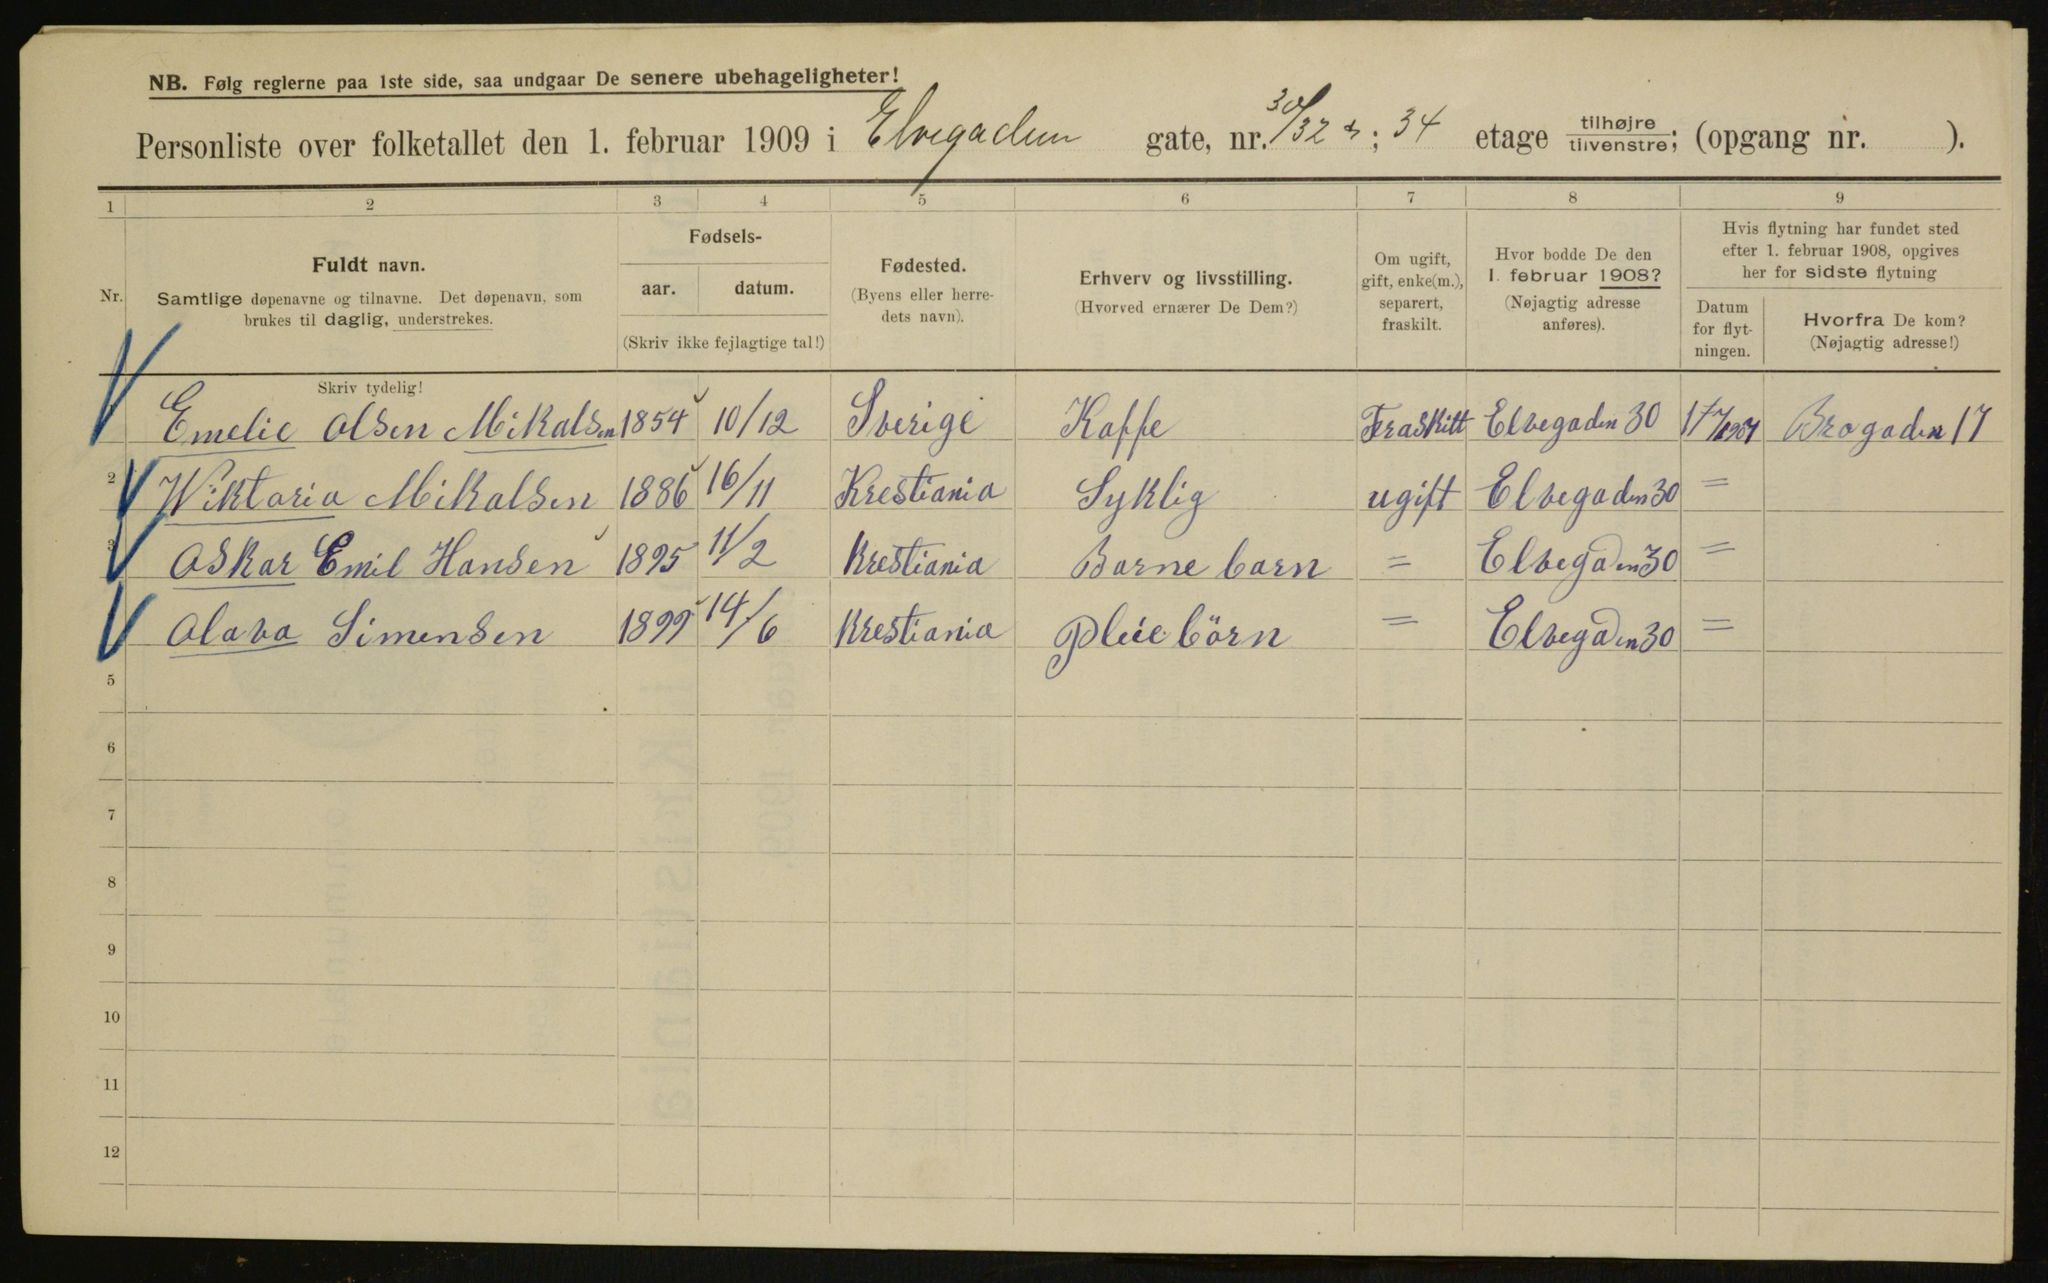 NB. Følg reglerne paa 1ste side, saa undgaar De senere ubehageligheter!
Personliste over folketallet den 1. februar 1909 i Elvegaden gate, nr. 30/32 ; 34 etage tilhøjre tilvenstre; (opgang nr. ).
1 2 3 4 5 6 7 8 9
Nr.
Fuldt navn.
Samtlige døpenavne og tilnavne. Det døpenavn, som
brukes til daglig, understrekes.
Fødsels-
aar. datum.
(Skriv ikke fejlagtige tal!)
Fødested.
(Byens eller herre-
dets navn).
Erhverv og livsstilling.
(Hvorved ernærer De Dem?)
Om ugift,
gift, enke(m.),
separert,
fraskilt.
Hvor bodde De den
1. februar 1908?
(Nøjagtig adresse
anføres).
Hvis flytning har fundet sted
efter 1. februar 1908, opgives
her for sidste flytning
Datum
for flyt-
ningen.
Hvorfra De kom?
(Nøjagtig adresse!)
Skriv tydelig!
Emelie Olsen Mikalsen 1854 10/12 Sverige Kaffe Fraskilt Elvegaden 30 Brogaden 17
2 Wiktoria Mikalsen 1886 16/11 Krestiania Syklig ugift Elvegaden 30 =
3 Oskar Emil Hansen 1895 11/2 Krestiania Barnebarn = Elvegaden 30 =
Olava Simensen 1899 14/6 Krestiania Pleiebörn = Elvegaden 30 =
5
6
7
8
9
10
11
12